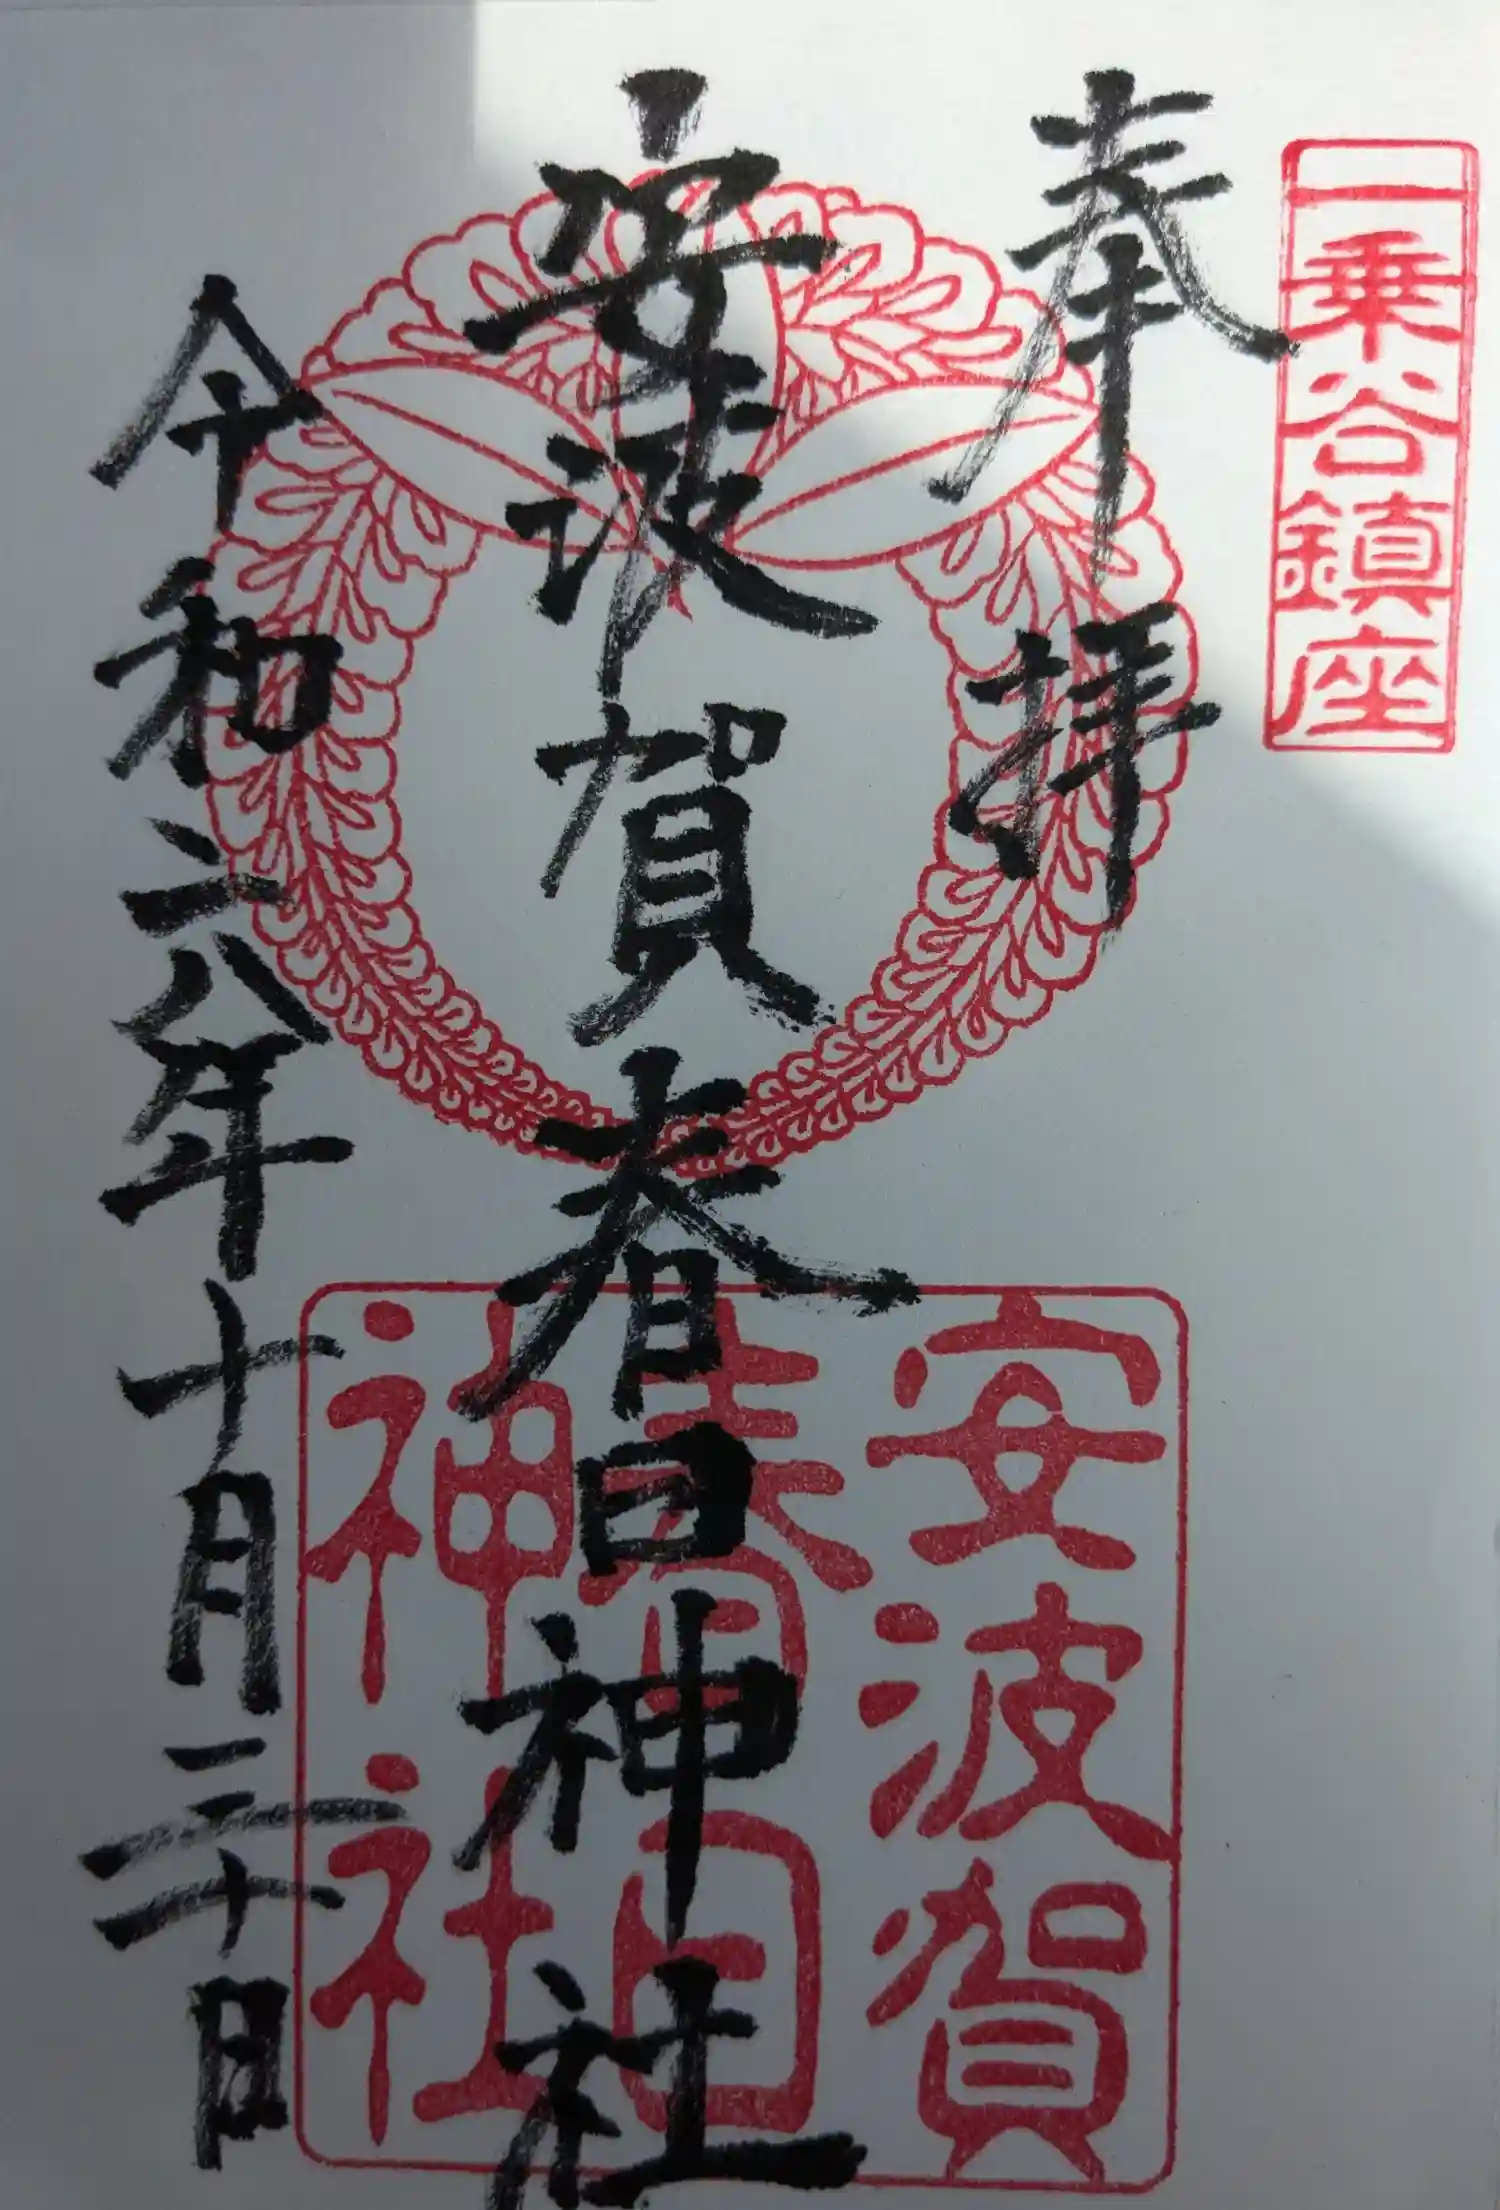 一乗谷鎮座
奉拝
安波賀春日神社
令和六年十月三十日
安波賀
春日
神社